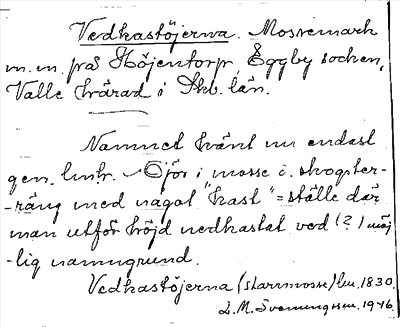 Vedkastöjerna. Mossemark
m.m. på Höjentorp Eggby socken,
Valle härad i Skb. län.
Namnet känt nu endast
gen. lmtr. Öjör i mosse o. skogster-
-räng med något "kast" = ställe där
man utför höjd nedkastat ved (?) möj
-lig namngrund.
Vedkastöjerna (starrmosse) lm. 1830.
L. M. Svenungsson. 1946.